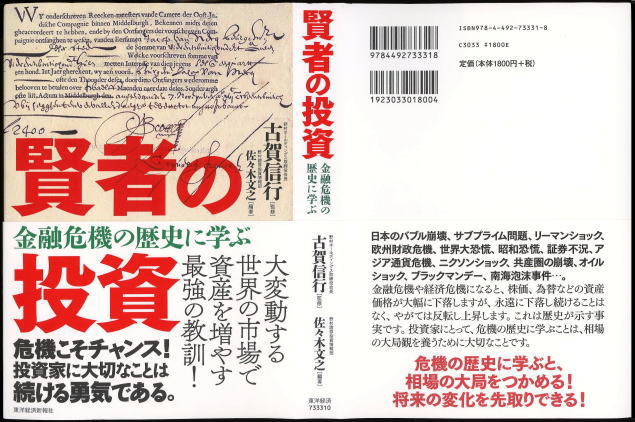 Wy onderschreven Reecken-meesters vande Camere der Oost-In-
dische Compagnie binnen Middelburgh, Bekennen midts desen
sen by den Ontfanger der voorschreven Com-
de somme van
Welcke voorschreven somme
hooren te betalen over
Middelburgh den
2400
賢者の
古賀信行
[監修]
佐々木文之
[編著]
金融危機の歴史に学ぶ
投資
大変動する
世界の市場で
資産を増やす
最強の教訓!
危機こそチャンス!
投資家に大切なことは
続ける勇気である。
東洋経済新報社
賢者の投資
金融危機の
歴史に学ぶ
古賀信行
[監修]
佐々木文之
[編著]
東洋経済
733310
ISBN978-4-492-73331-8
C3033 ¥1800E
定価(本体1800円+税)
9784492733318
1923033018004
日本のバブル崩壊、サブプライム問題、リーマンショック、
欧州財政危機、世界大恐慌、昭和恐慌、証券不況、ア
ジア通貨危機、ニクソンショック、共産圏の崩壊、オイル
ショック、ブラックマンデー、南海泡沫事件…。
金融危機や経済危機になると、株価、為替などの資産
価格が大幅に下落しますが、永遠に下落し続けることは
なく、やがては反転し上昇します。これは歴史が示す事
実です。投資家にとって、危機の歴史に学ぶことは、相場
の大局観を養うために大切なことです。
危機の歴史に学ぶと、
相場の大局をつかめる!
将来の変化を先取りできる!